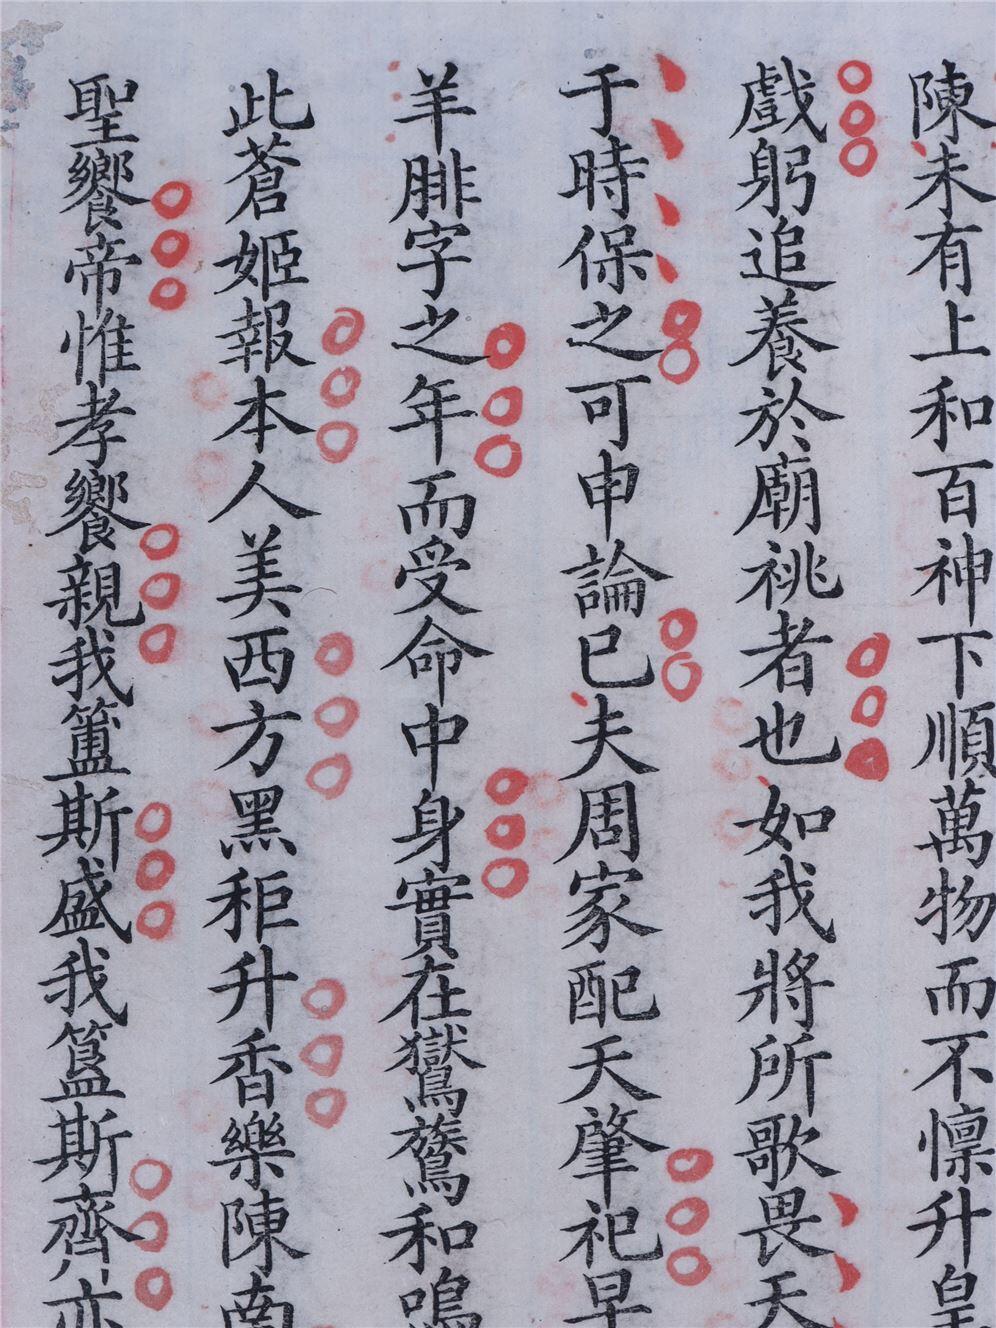 陳未有上和百神下順萬物而不懍升皇
戲躬追養於廟祧者也如我將所歌畏天
于時保之可申論已夫周家配天肇祀早
羊腓字之年而受命中身實在鸑鷟和鳴
此蒼姬報本人美西方黑秬升香樂陳南
聖饗帝惟孝饗親我簠斯盛我簋斯齊亦